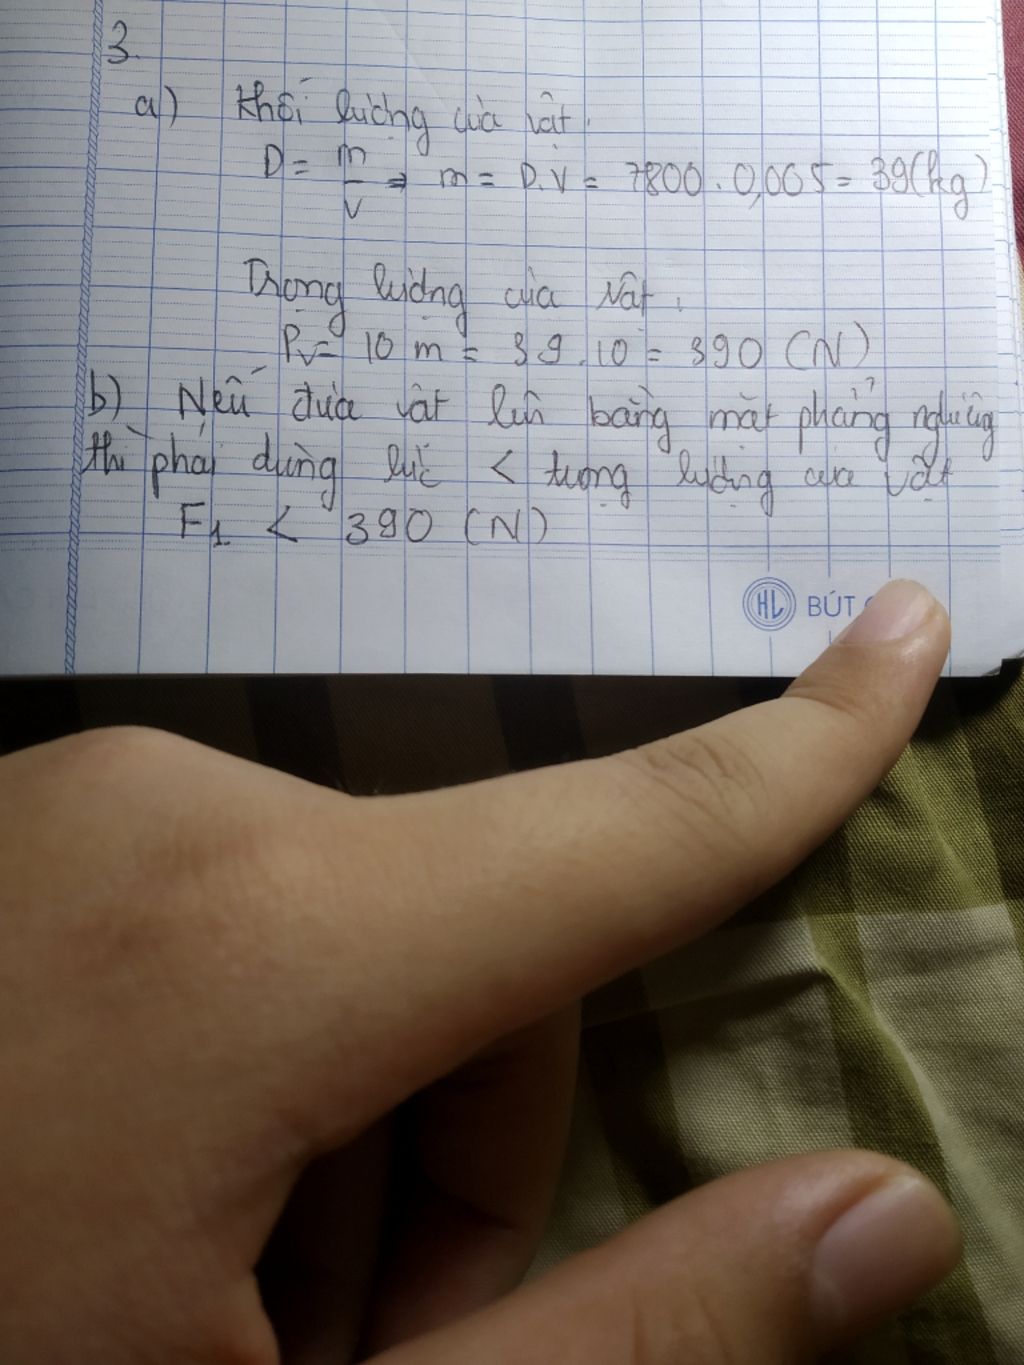 3.
a) Khối lượng của vật.
D = m/V ⇒ m = D.V = 7800 . 0,005 = 39(kg)
Trọng lượng của vật.
Pv = 10 m = 39.10 = 390 (N)
b) Nếu đưa vật lên bằng mặt phẳng nghiêng
thì phải dùng lực < trọng lượng của vật
F1 < 390 (N)
HL BÚT